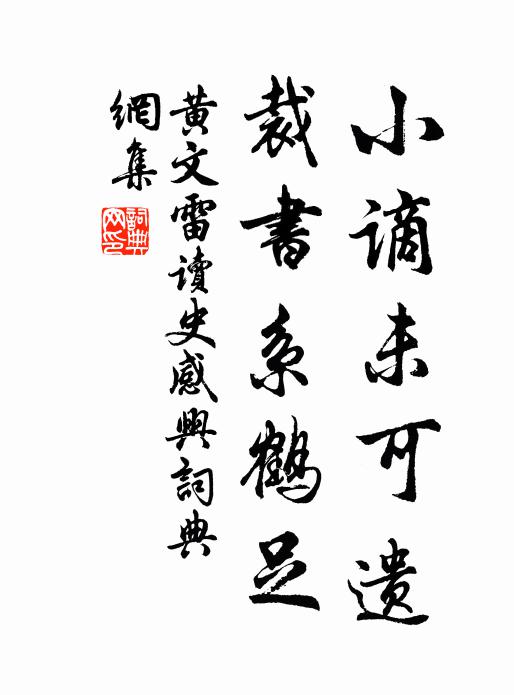 小謫未可遺
裁書系鶴足
黄文雷讀史感興詞典
網集
詞典
网印